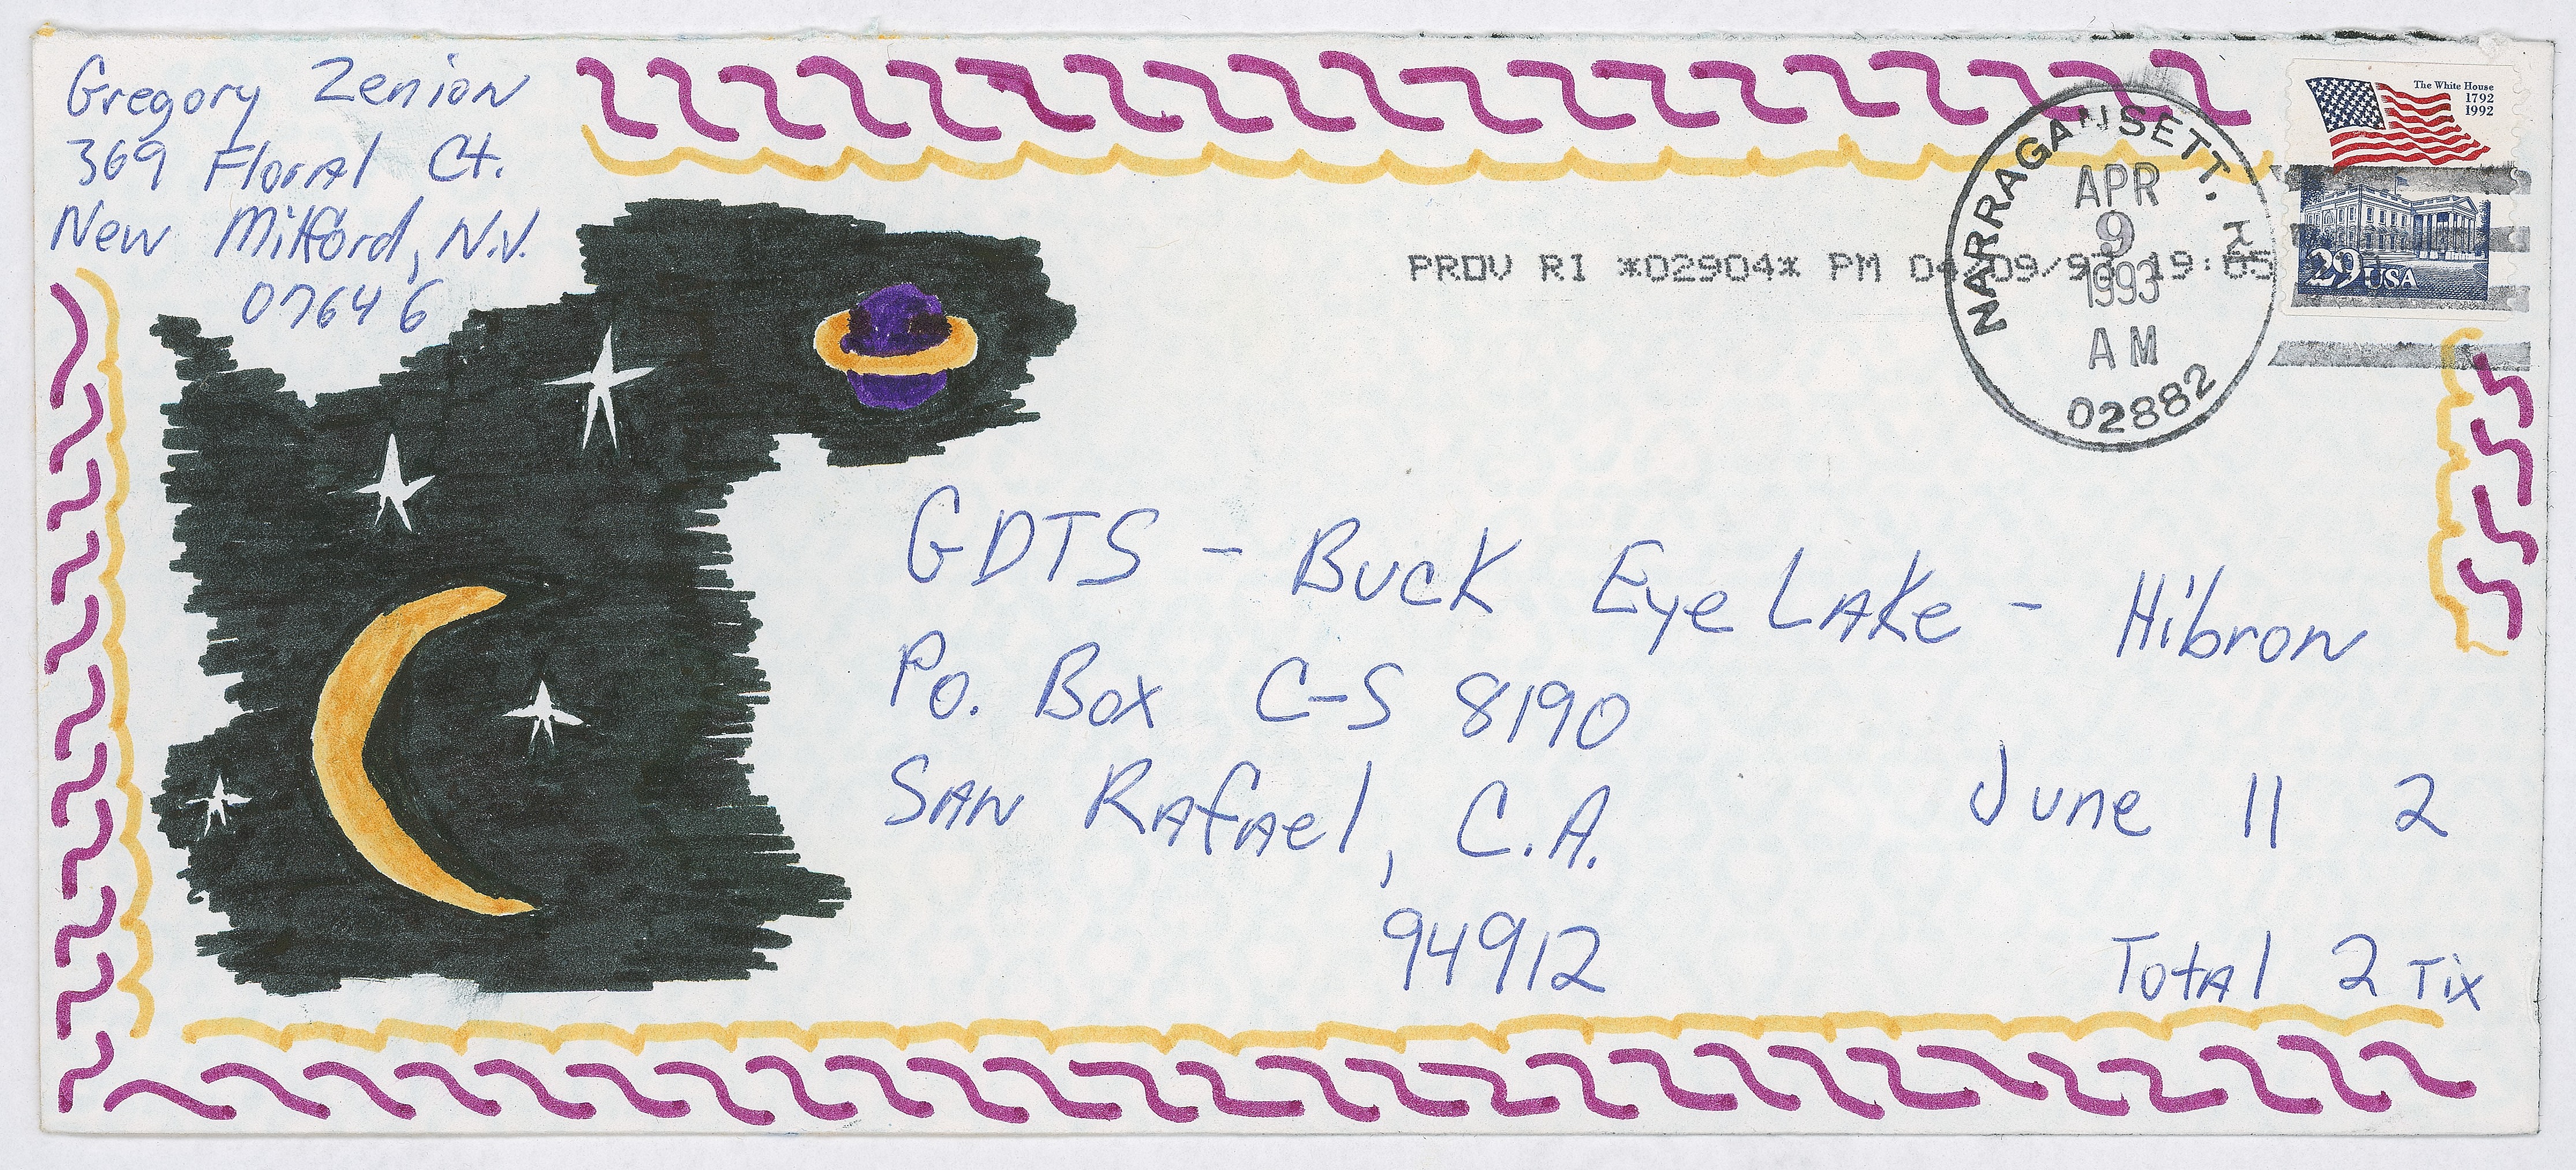 Gregory Zenion
369 Floral Ct.
New Milford, N.J.
07646
The White House
1792
1992
29 USA
NARRAGANSETT, RI
APR
9
1993
AM
02882
PROV RI *02904* PM 04/09/93 19:05
GDTS - Buck Eye Lake - Hibron
Po. Box C-S 8190
San Rafael, C.A.
94912
June 11 2
Total 2 Tix